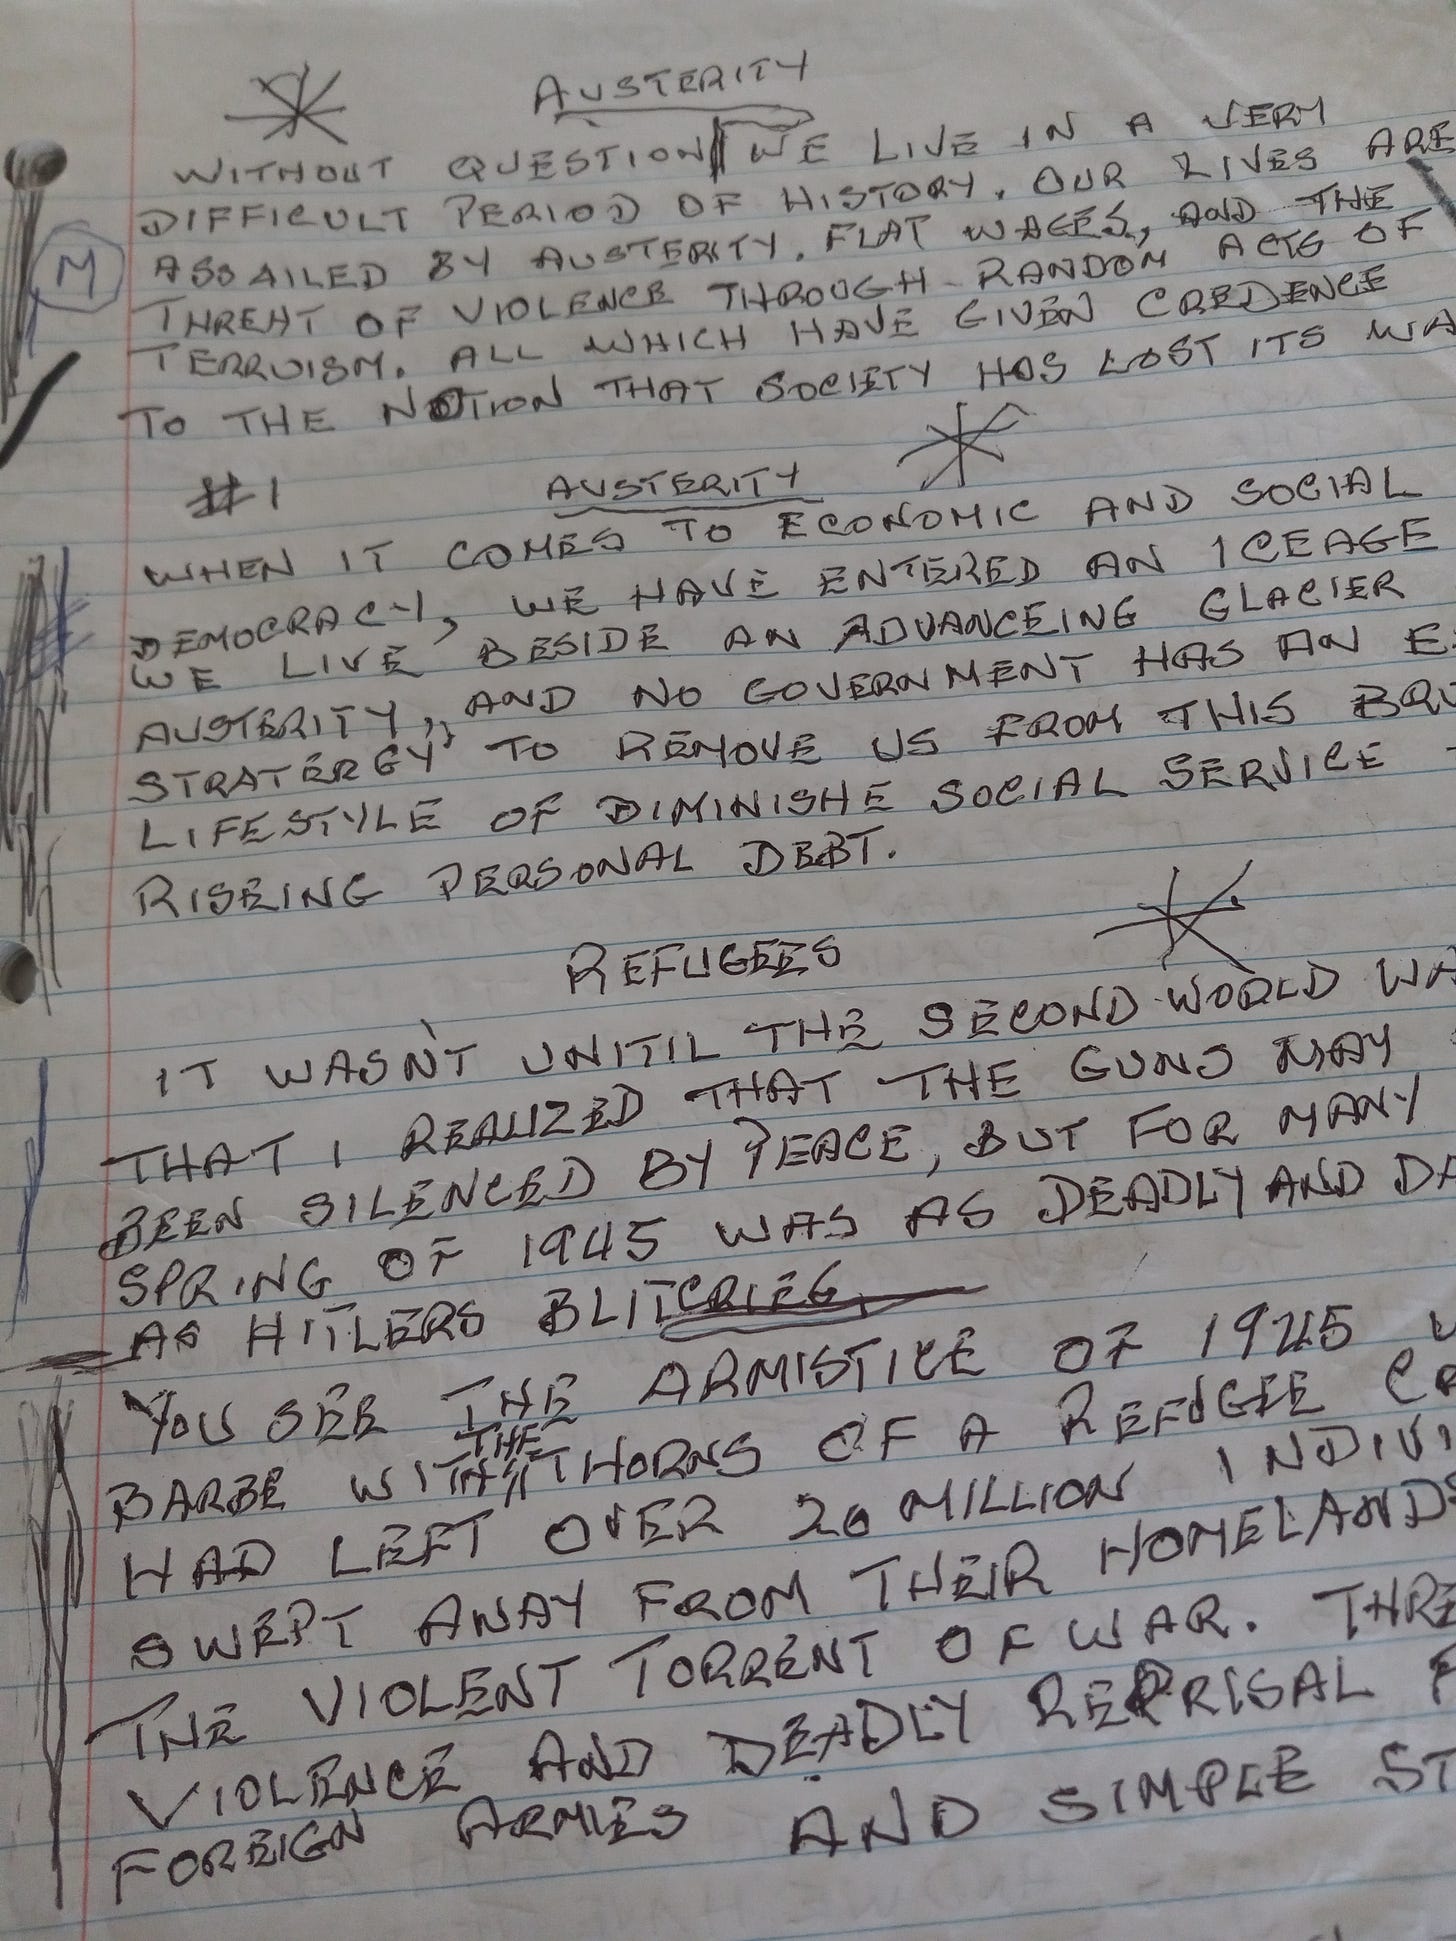 AUSTERITY
WITHOUT QUESTION WE LIVE IN A VERY
DIFFICULT PERIOD OF HISTORY. OUR LIVES ARE
M
ASSAILED BY AUSTERITY. FLAT WAGES, AND THE
THREAT OF VIOLENCE THROUGH RANDOM ACTS OF
TERRUISM. ALL WHICH HAVE GIVEN CREDENCE
TO THE NOTION THAT SOCIETY HAS LOST ITS WA
#1 AUSTERITY
WHEN IT COMES TO ECONOMIC AND SOCIAL
DEMOCRACY, WE HAVE ENTERED AN ICEAGE
WE LIVE BESIDE AN ADVANCEING GLACIER
AUSTERITY, AND NO GOVERNMENT HAS AN E
STRATERGY TO REMOVE US FROM THIS BRU
LIFESTYLE OF DIMINISHE SOCIAL SERVICE
RISEING PERSONAL DEBT.
REFUGEES
IT WASN'T UNITIL THE SECOND WORLD WA
THAT I REALIZED THAT THE GUNS MAY
BEEN SILENCED BY PEACE, BUT FOR MANY
SPRING OF 1945 WAS AS DEADLY AND DA
AS HITLERS BLITCRIEG
YOU SEE THE ARMISTICE OF 1945 W
BARBE WITH THE THORNS OF A REFUGEE CR
HAD LEFT OVER 20 MILLION INDIVI
SWEPT AWAY FROM THEIR HOMELANDS
THE VIOLENT TORRENT OF WAR. THRE
VIOLENCE AND DEADLY REPRISAL F
FOREIGN ARMIES AND SIMPLE ST